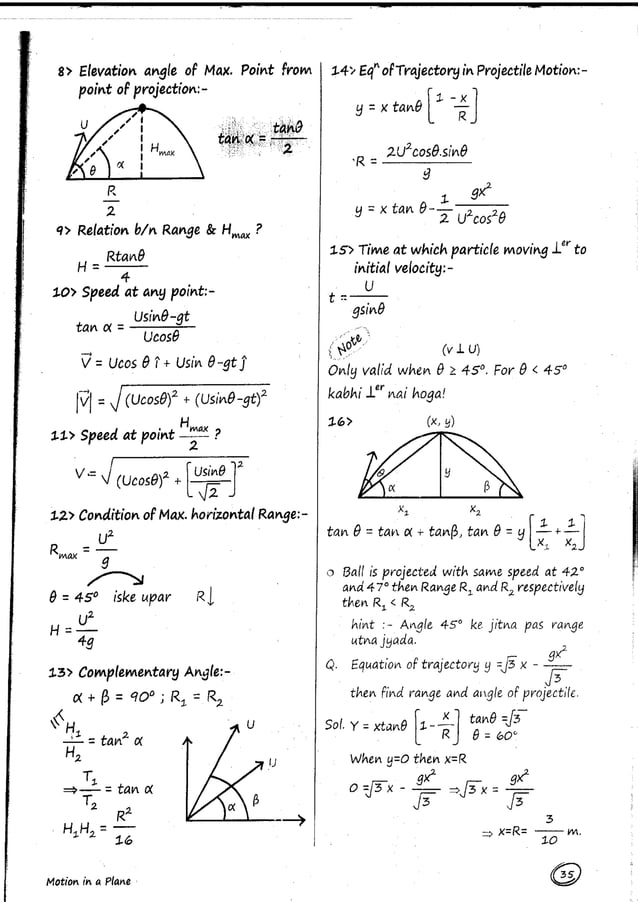 8> Elevation angle of Max. Point from
point of projection:-
U
θ
α
H_max
tan α = tanθ/2
R/2
9> Relation b/n Range & H_max ?
H = Rtanθ/4
10> Speed at any point:-
tan α = (Usinθ-gt)/(Ucosθ)
V⃗ = Ucos θ î + Usin θ-gt ĵ
|V⃗| = √((Ucosθ)² + (Usinθ-gt)²)
11> Speed at point H_max/2 ?
V = √((Ucosθ)² + [Usinθ/√2]²)
12> Condition of Max. horizontal Range:-
R_max = U²/g
θ = 45° iske upar R↓
H = U²/4g
13> Complementary Angle:-
α + β = 90° ; R₁ = R₂
IIT
H₁/H₂ = tan² α
⇒ T₁/T₂ = tan α
H₁H₂ = R²/16
U
U
α
β
Motion in a Plane
14> Eqⁿ of Trajectory in Projectile Motion:-
y = x tanθ [1 - x/R]
R = 2U²cosθ.sinθ/g
y = x tan θ - 1/2 gx²/U²cos²θ
15> Time at which particle moving ⊥er to
initial velocity:-
t = U/gsinθ
Note
(v ⊥ U)
Only valid when θ ≥ 45°. For θ < 45°
kabhi ⊥er nai hoga!
16>
(x, y)
θ
α
y
β
x₁
x₂
tan θ = tan α + tanβ, tan θ = y [1/x₁ + 1/x₂]
○ Ball is projected with same speed at 42°
and 47° then Range R₁ and R₂ respectively
then R₁ < R₂
hint :- Angle 45° ke jitna pas range
utna jyada.
Q. Equation of trajectory y = √3 x - gx²/√3
then find range and angle of projectile.
Sol. Y = xtanθ [1 - x/R] tanθ = √3
θ = 60°
When y=0 then x=R
0 = √3 x - gx²/√3 ⇒ √3 x = gx²/√3
⇒ x=R= 3/10 m.
35